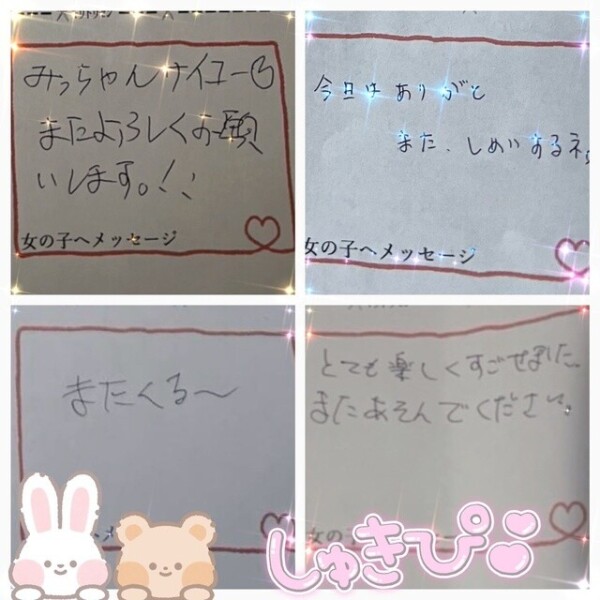 みっちゃんナイスー
またよろしくお願
いします。!!
女の子へメッセージ
今日はありがと
また、しめいするネ。
女の子へメッセージ
またくる〜
とても楽しくすごせました。
またあそんでください。
女の
しゅきぴ